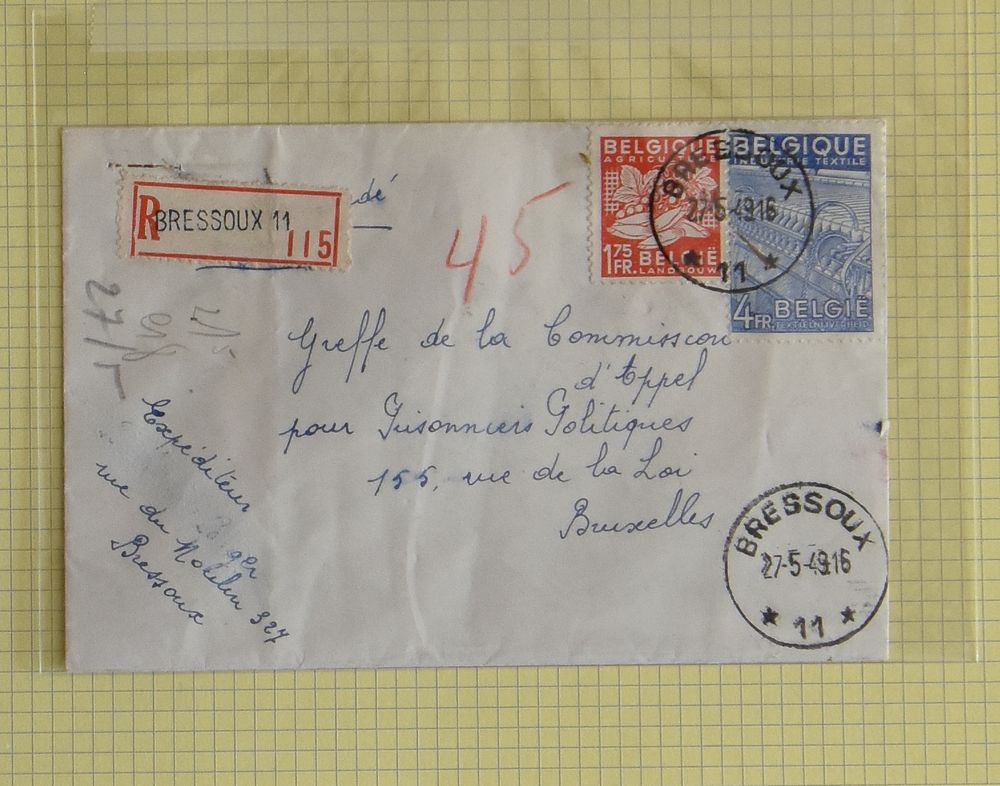 BELGIQUE
AGRICULTURE
1.75
FR. BELGIË
LANDBOUW
BELGIQUE
INDUSTRIE TEXTILE
4FR. BELGIË
TEXTIELNIJVERHEID
BRESSOUX
27-5-49 16
★ 11 ★
dé
R BRESSOUX 11
115
45
27/5
Greffe de la Commission
d'Appel
pour Prisonniers Politiques
155, rue de la Loi
Bruxelles
Expéditeur
ger
rue du Moulin 327
Bressoux
BRESSOUX
27-5-49 16
★ 11 ★